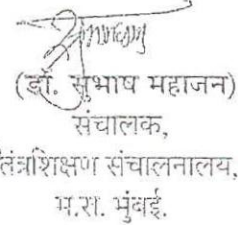 (डॉ. सुभाष महाजन)
संचालक,
तंत्रशिक्षण संचालनालय,
म.रा. मुंबई.